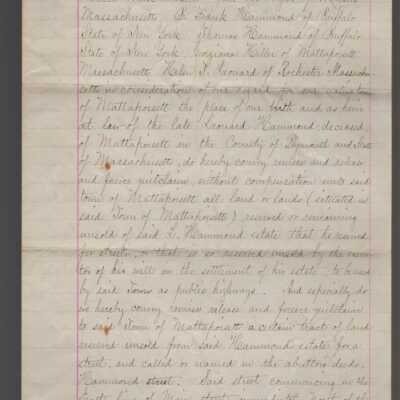 Massachusetts, B. Frank Hammond of Buffalo
State of New York. Thomas Hammond of Buffalo
State of New York Georgiana Hiller of Mattapoisett
Massachusetts Helen S. Leonard of Rochester Massachu
setts in consideration of our regard for our native town
of Mattapoisett the place of our birth and as heirs
at law of the late Leonard Hammond deceased
of Mattapoisett in the County of Plymouth and State
of Massachusetts, do hereby convey remise and release
and forever quitclaim, without compensation unto said
town of Mattapoisett all land or lands (situated in
said Town of Mattapoisett) reserved or remaining
unsold of said L. Hammond estate that he reserved
for streets, or that is so reserved unsold by the execu
tor of his will on the settlement of his estate to be used
by said Town as public highways. And especially do
we hereby convey remise release and forever quitclaim
to said Town of Mattapoisett a certain tract of land
reserved unsold from said Hammond estate for a
street, and called or named in the abuttors deeds,
Hammond street. Said street commencing in the
line of Main street